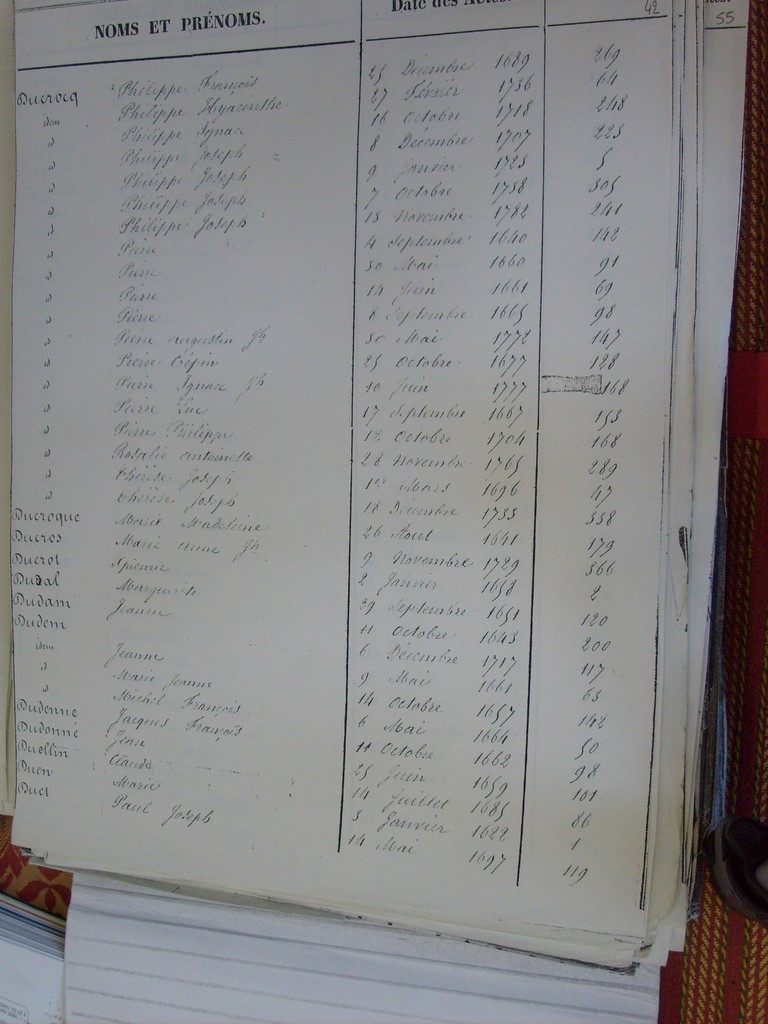 42
55
NOMS ET PRÉNOMS. Date des Actes.
Ducrocq Philippe François 25 Décembre 1689 269
idem Philippe Hyacinthe 27 Février 1736 64
" Philippe Ignace 16 Octobre 1718 248
" Philippe Joseph 8 Décembre 1707 223
" Philippe Joseph 9 Janvier 1723 5
" Philippe Joseph 7 Octobre 1738 305
" Philippe Joseph 13 Novembre 1782 241
" Pierre 4 Septembre 1640 142
" Pierre 30 Mai 1660 91
" Pierre 14 Juin 1661 69
" Pierre 8 Septembre 1665 98
" Pierre Augustin Jh 30 Mai 1772 147
" Pierre Crépin 25 Octobre 1677 128
" Pierre Ignace Jh 10 Juin 1777 168
" Pierre Luc 17 Septembre 1667 153
" Pierre Philippe 12 Octobre 1704 168
" Rosalie Antoinette 28 Novembre 1765 289
" Thérèse Joseph 1er Mars 1696 47
" Thérèse Joseph 18 Décembre 1733 338
Ducroque Marie Madeleine 26 Aout 1641 179
Ducros Marie Anne Jh 9 Novembre 1729 366
Ducrot 2 Janvier 1658 2
Dudal Marguerite 29 Septembre 1651 120
Dudam Jeanne 11 Octobre 1643 200
Dudem 6 Décembre 1717 117
idem Jeanne 9 Mai 1661 63
" Marie Jeanne 14 Octobre 1657 142
" Michel François 6 Mai 1664 50
Dudenne Jacques François 11 Octobre 1662 98
Dudonné Jean 25 Juin 1659 101
Duellin Claude 14 Juillet 1685 86
Duen Marie 3 Janvier 1622 1
Duet Paul Joseph 14 Mai 1697 119